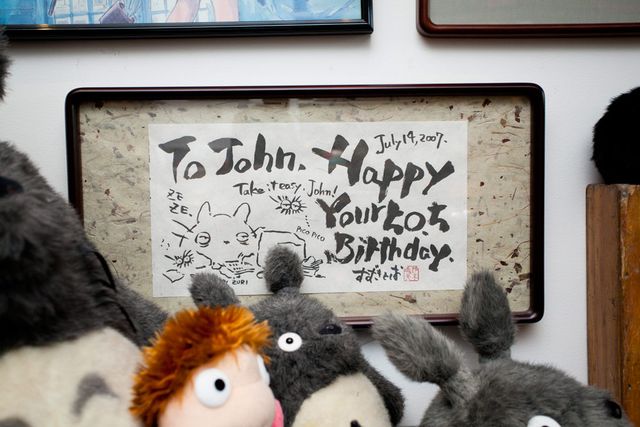 To John. Happy
July 14, 2007.
Take it easy. John!
Your 50th
Birthday.
ゼ
ゼ.
PICO PICO
ZURI
すずきとしお